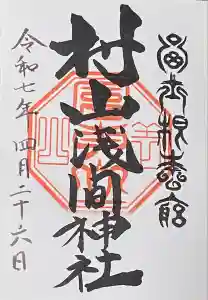 冨士根本宮
村山浅間神社
令和七年 四月二十六日